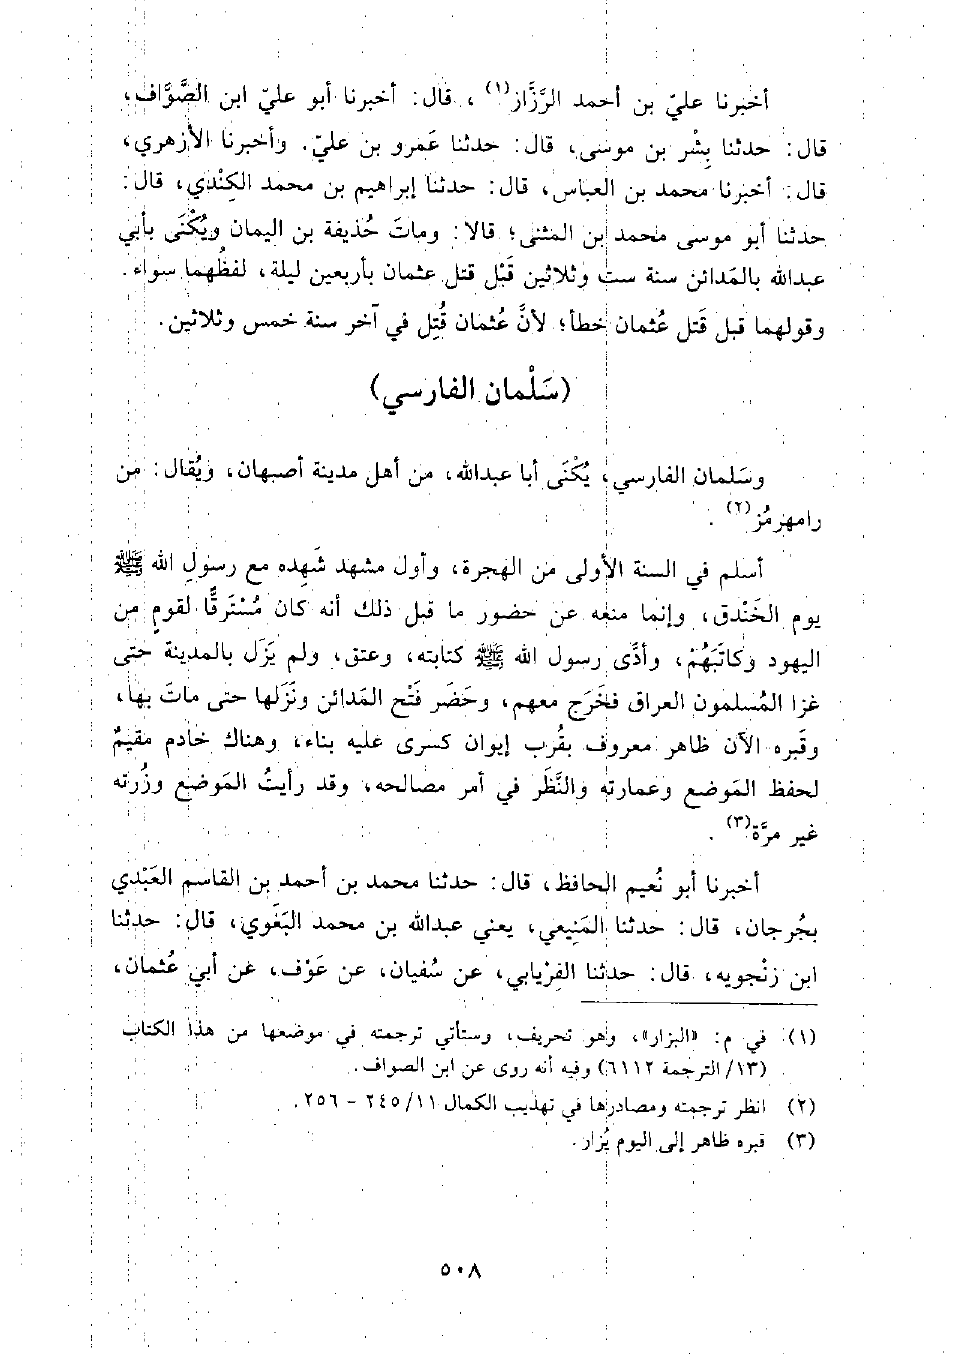 أخبرنا عليّ بن أحمد الرَّزَّاز(١)، قال: أخبرنا أبو عليّ ابن الصَّوَّاف،
قال: حدثنا بِشْر بن موسى، قال: حدثنا عَمرو بن عليّ. وأخبرنا الأزهري،
قال: أخبرنا محمد بن العباس، قال: حدثنا إبراهيم بن محمد الكِنْدي، قال:
حدثنا أبو موسى محمد ابن المثنى؛ قالا: وماتَ حُذيفة بن اليمان ويُكْنَى بأبي
عبدالله بالمَدائن سنة ست وثلاثين قَبْل قتل عثمان بأربعين ليلة، لفظُهما سواء.
وقولهما قبل قَتل عُثمان خطأ؛ لأنَّ عُثمان قُتِل في آخر سنة خمس وثلاثين.
(سَلْمان الفارسي)
وسَلمان الفارسي، يُكْنَى أبا عبدالله، من أهل مدينة أصبهان، ويُقال: من
رامهرمُز(٢).
أسلم في السنة الأولى من الهجرة، وأول مشهد شَهِده مع رسولِ الله ﷺ
يوم الخَنْدق، وإنما منعه عن حضور ما قبل ذلك أنه كان مُسْتَرقًّا لقومٍ من
اليهود وكاتَبَهُمْ، وأدَّى رسول الله ﷺ كتابته، وعتق، ولم يَزَل بالمدينة حتى
غزا المُسلمون العراق فخَرَج معهم، وحَضَر فَتْح المَدائن ونَزَلها حتى ماتَ بها،
وقَبره الآن ظاهر معروف بقُرب إيوان كسرى عليه بناء، وهناك خادم مقيمٌ
لحفظ المَوضع وعمارته والنَّظَر في أمر مصالحه، وقد رأيتُ المَوضع وزُرته
غير مرَّة(٣).
أخبرنا أبو نُعيم الحافظ، قال: حدثنا محمد بن أحمد بن القاسم العَبْدي
بجُرجان، قال: حدثنا المَنِيعي، يعني عبدالله بن محمد البَغَوي، قال: حدثنا
ابن زنْجويه، قال: حدثنا الفِرْيابي، عن سُفيان، عن عَوْف، عن أبي عُثمان،
(١) في م: «البزار»، وهو تحريف، وستأتي ترجمته في موضعها من هذا الكتاب
(١٣/ الترجمة ٦١١٢) وفيه أنه روى عن ابن الصواف.
(٢) انظر ترجمته ومصادرها في تهذيب الكمال ١١/ ٢٤٥ - ٢٥٦.
(٣) قبره ظاهر إلى اليوم يُزار.
٥٠٨